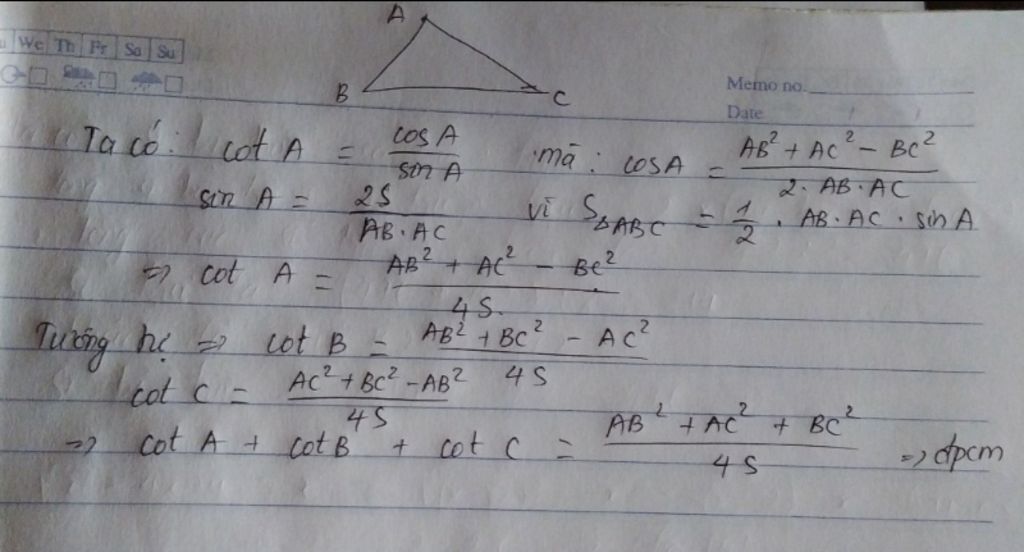 We Th Fr Sa Su
A
B C
Memo no.
Date
Ta có: cot A = cosA / sin A mà: cosA = AB² + AC² - BC² / 2. AB. AC
sin A = 2S / AB. AC vì S△ABC = 1/2 . AB. AC . sin A
=> cot A = AB² + AC² - BC² / 4S.
Tương tự => cot B = AB² + BC² - AC² / 4S
cot C = AC² + BC² - AB² / 4S
=> cot A + cot B + cot C = AB² + AC² + BC² / 4S => đpcm